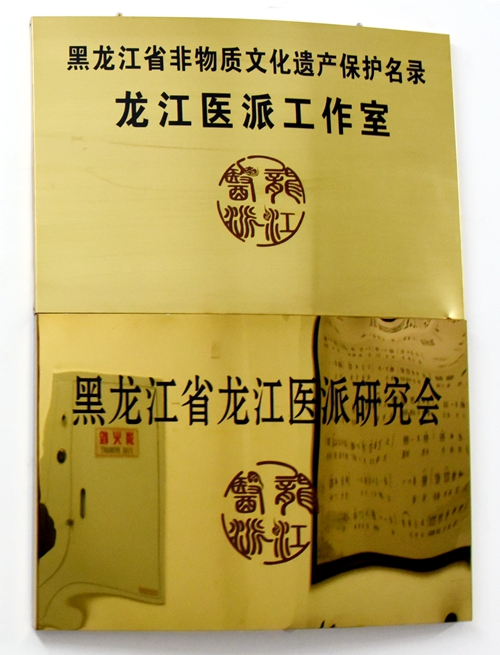 黑龙江省非物质文化遗产保护名录
龙江医派工作室
龍江
醫派
黑龙江省龙江医派研究会
龍江
醫派